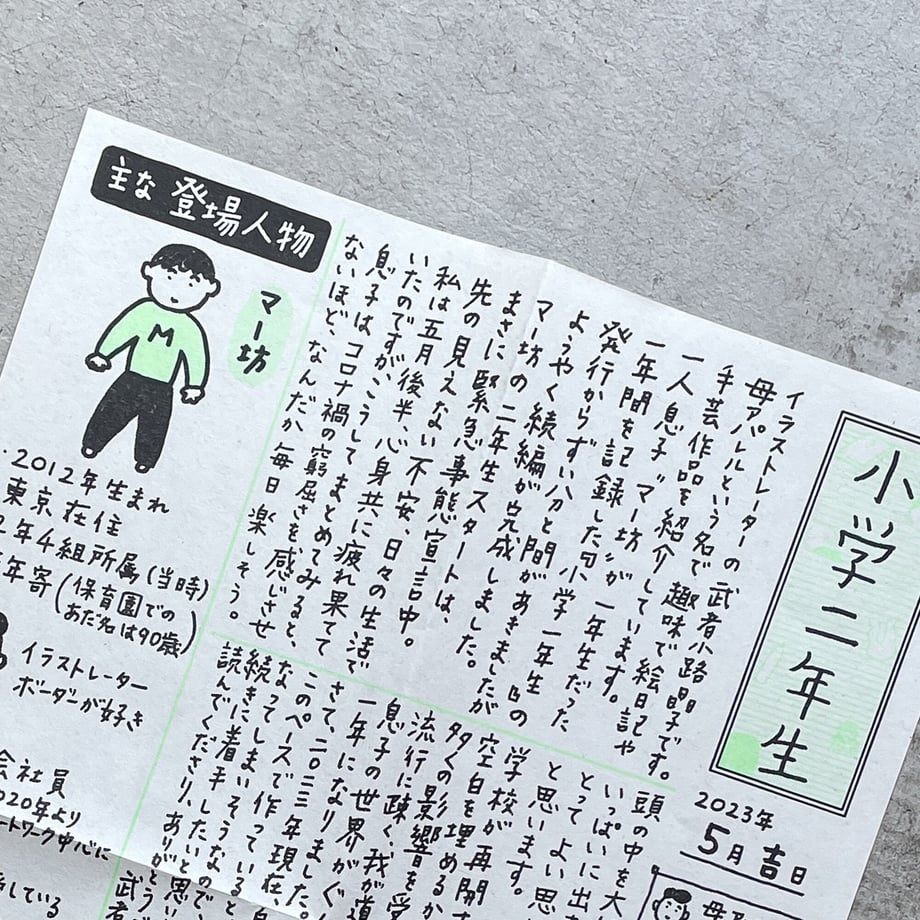 小学二年生
2023年
5月吉日
イラストレーターの武者小路晶子です。
母アパレルという名で趣味で絵日記や
手芸作品を紹介しています。
一人息子〝マー坊〟が一年生だった
一年間を記録した〝小学一年生の日〟
発行からずい分と間があきましたが
ようやく続編が完成しました。
マー坊の二年生スタートは、
まさに緊急事態宣言中。
先の見えない不安、日々の生活で
私は五月後半、心身共に疲れ果てて
いたのですが、こうしてまとめてみると、
息子はコロナ禍の窮屈さを感じさせ
ないほど、なんだか毎日楽しそう。
頭の中を大
いっぱいに出
とってよい思
と思います。
学校が再開
空白を埋めるか
多くの影響を受
流行に疎く、我が道
息子の世界がぐ
一年になりました。
さて、二〇二三年現在、
このペースで作っていると
なってしまいそうなので、
続きに着手したいと思い
読んでくださり、ありがとう
武者
主な登場人物
M
マー坊
・2012年生まれ
東京在住
2年4組所属(当時)
年寄(保育園での
あだ名は90歳)
イラストレーター
ボーダーが好き
会社員
020年より
ートワーク中心に
している